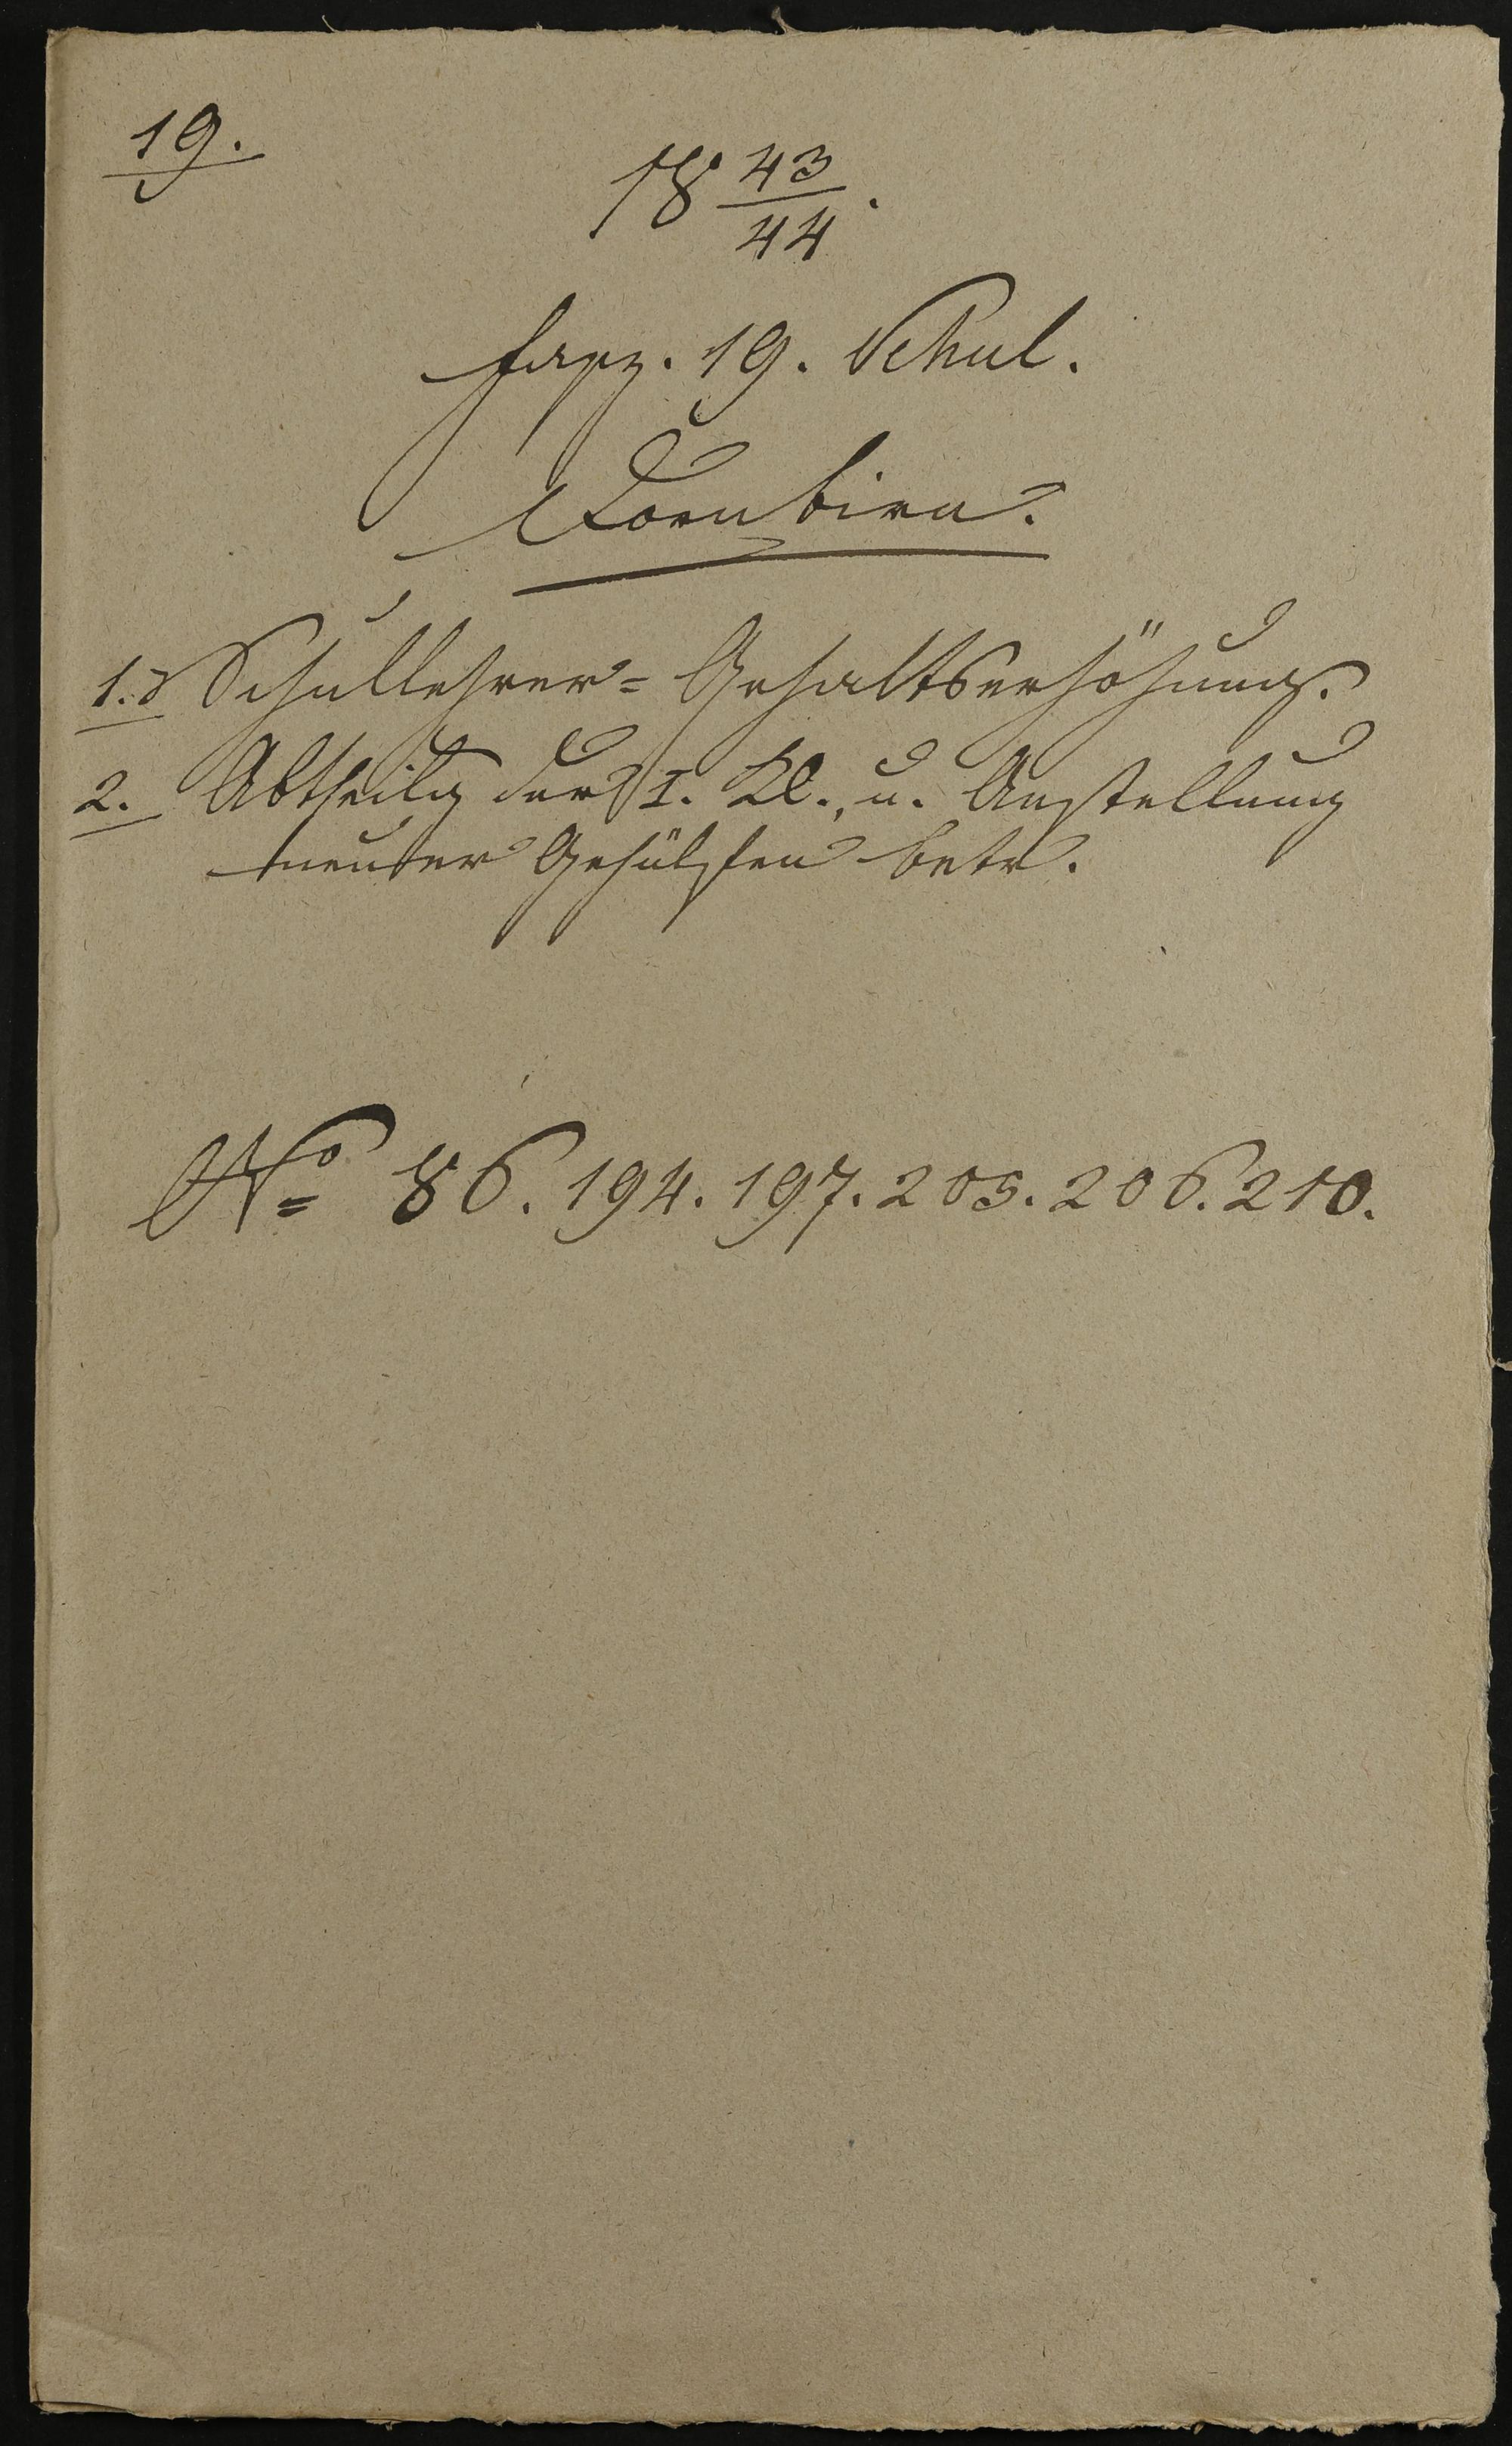 19.
18 43/44.
fasz. 19. Schul.
Dornbirn.
1. Schullehrer= Gehaltserhöhung.
2. Abtheilg der I. Kl., u. Anstellung
neuer Gehülfen betr.
No 86. 194. 197. 205. 206. 210.